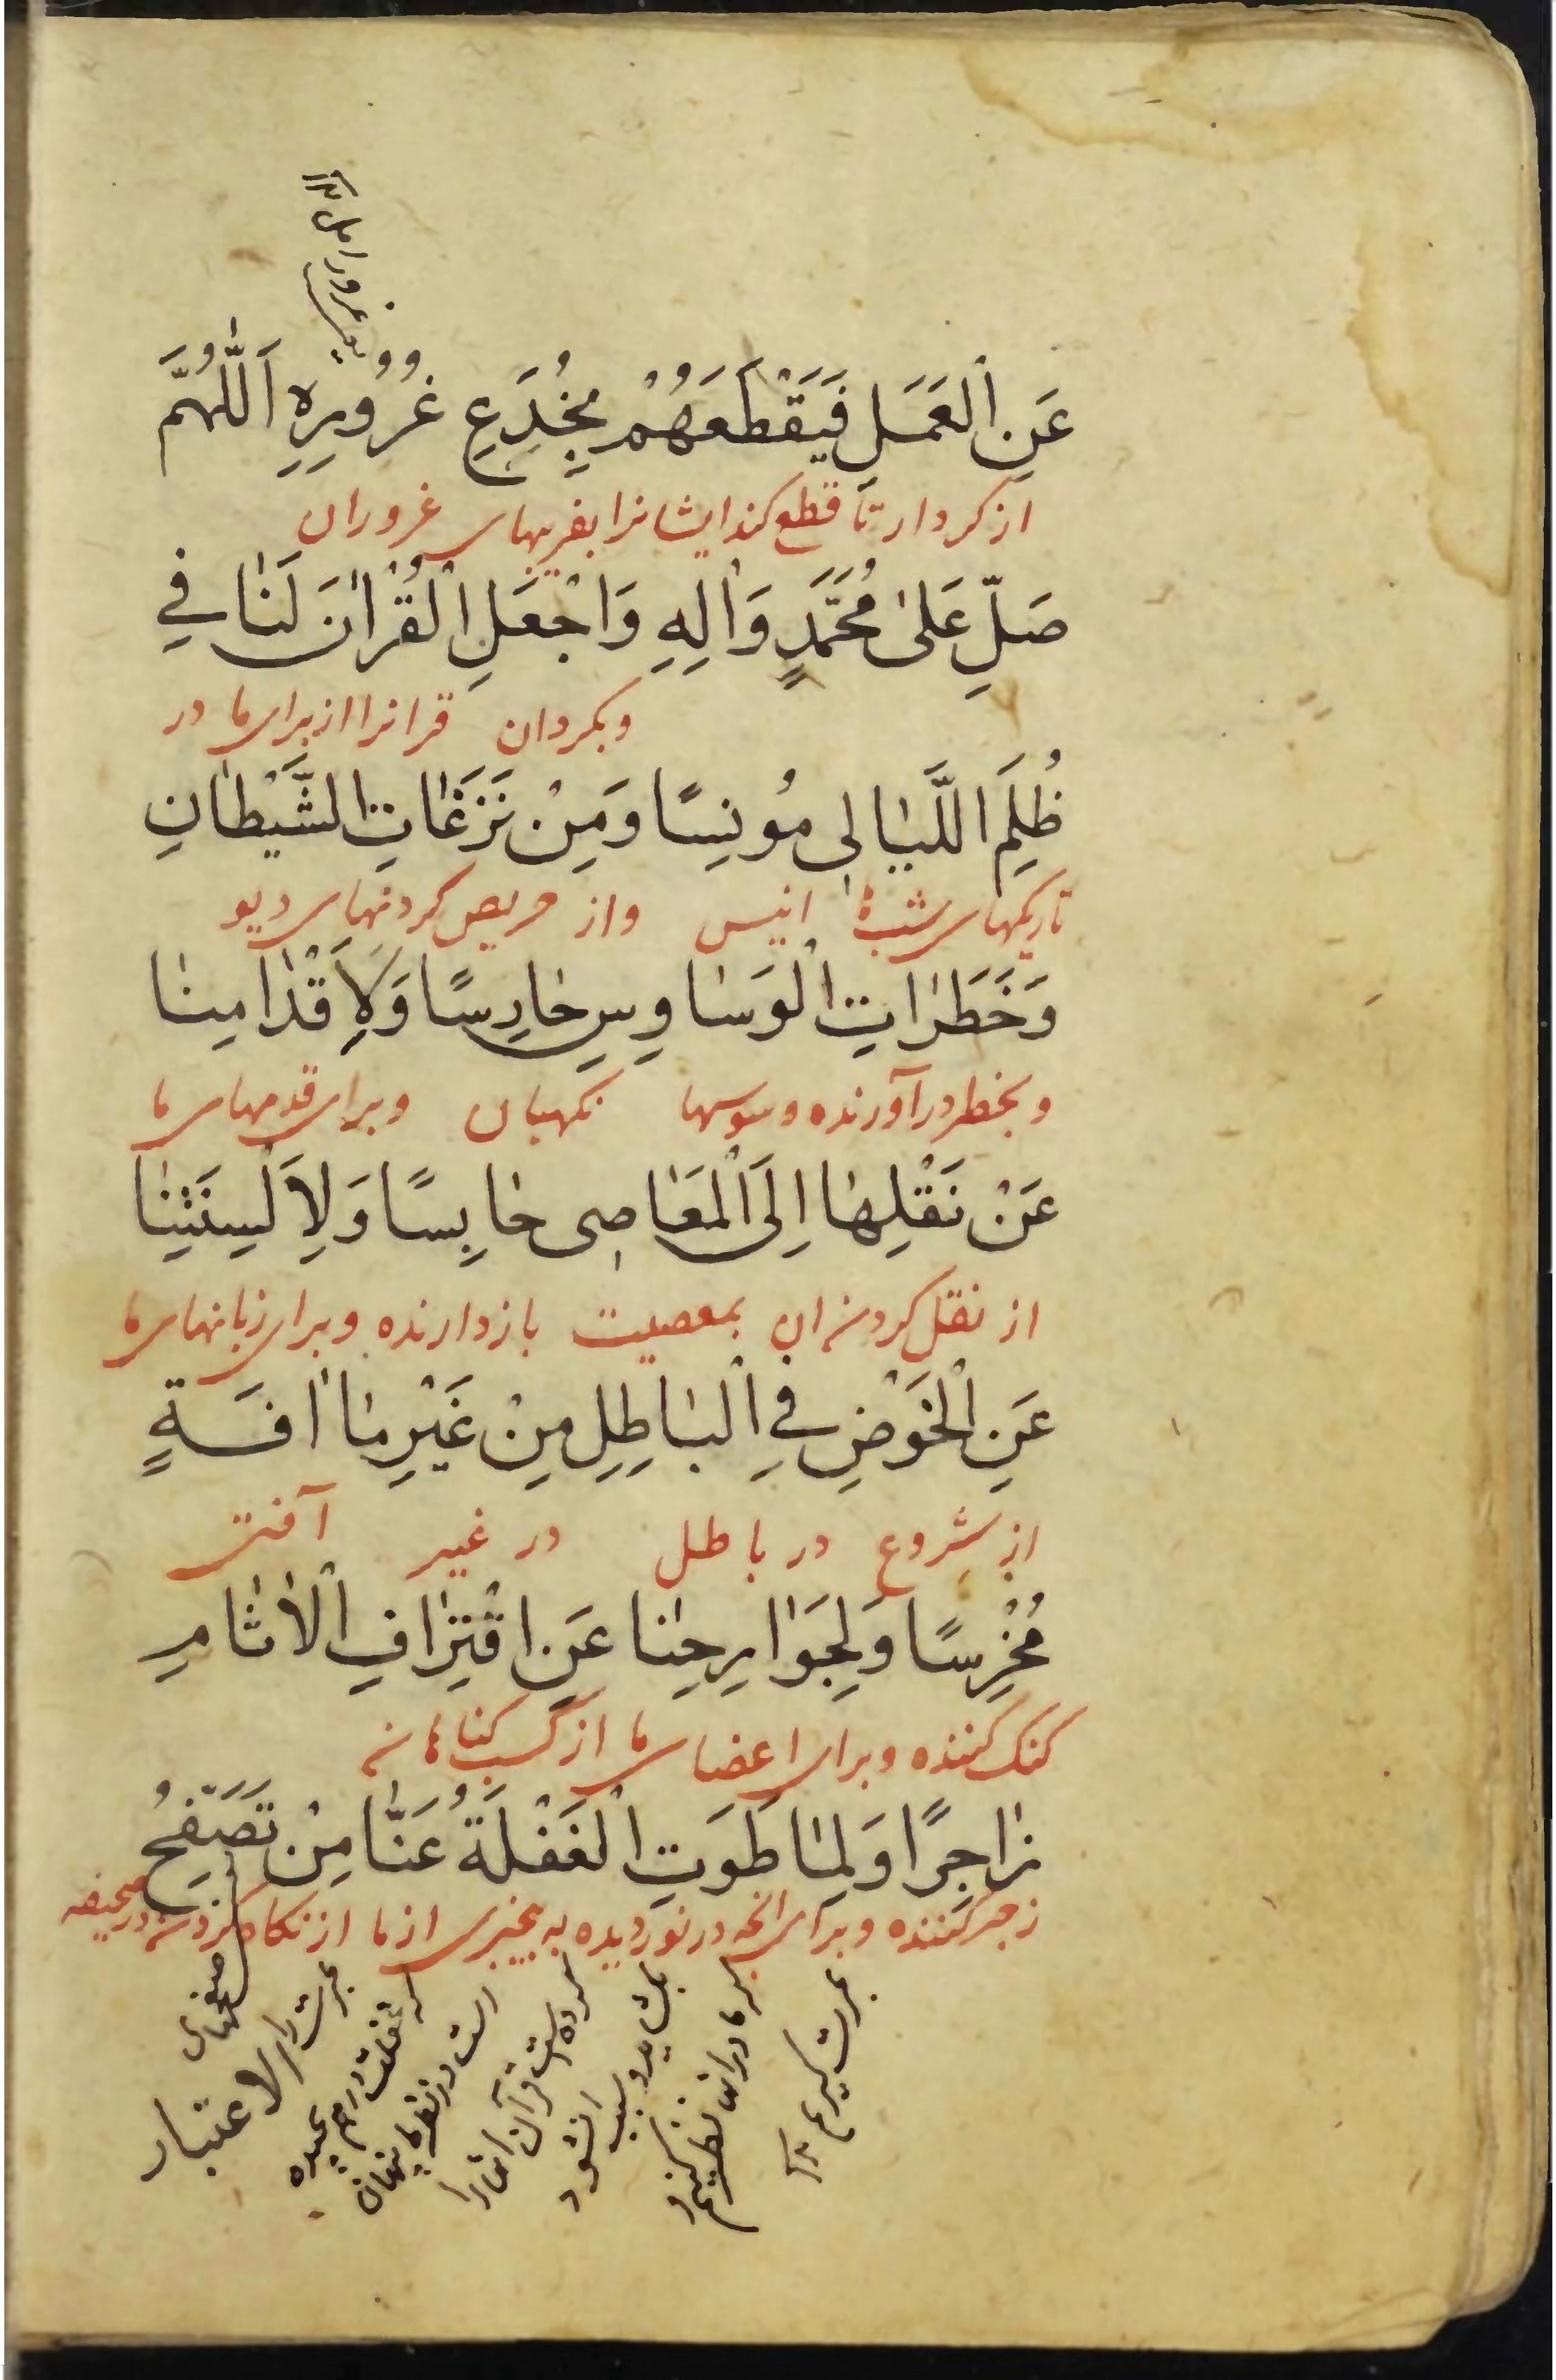 عَنِ الْعَمَلِ فَيَقْطَعَهُمْ بِخُدَعِ غُرُورِهِ اَللّٰهُمَّ
از کردار تا قطع کند ایشانرا بفریبهای غرور ان
صَلِّ عَلىٰ مُحَمَّدٍ وَاٰلِهِ وَاجْعَلِ الْقُرْاٰنَ لَنٰا في
وبکردان قرانرا از برای ما در
ظُلَمِ اللَّيٰالِى مُونِسًا وَمِنْ نَزَغٰاتِ الشَّيْطٰانِ
تاریکیهای شبها انیس واز حریص کردنهای دیو
وَخَطَرٰاتِ الْوَسٰاوِسِ حٰارِسًا وَلِاَقْدٰامِنٰا
وبخطر درآورنده وسوسها نکهبان وبرای قدمهای ما
عَنْ نَقْلِهٰا اِلَى الْمَعٰاصِى حٰابِسًا وَلِاَلْسِنَتِنٰا
از نقل کردن ان بمعصیت بازدارنده وبرای زبانهای ما
عَنِ الْخَوْضِ فِي الْبٰاطِلِ مِنْ غَيْرِ مٰا اٰفَةٍ
از شروع در باطل در غیر آفت
مُخْرِسًا وَلِجَوٰارِحِنٰا عَنِ اقْتِرٰافِ الْاٰثٰامِ
کنک کننده وبرای اعضای ما از کسب کناهان
زٰاجِرًا وَلِمٰا طَوَتِ الْغَفْلَةُ عَنَّا مِنْ تَصَفُّحِ
زجر کننده وبرای انچه در نوردیده به بیخبری از ما از نکاه کردن در صحیفه
الاعتبار
صفحهای
عبرت را
که غفلت درهم پیچیده
است در نظر ما پنهان
کرده است قرآن انها را
بکشاید و سبب انشود
که ما دران نظر کنیم و
عبرت کیریم